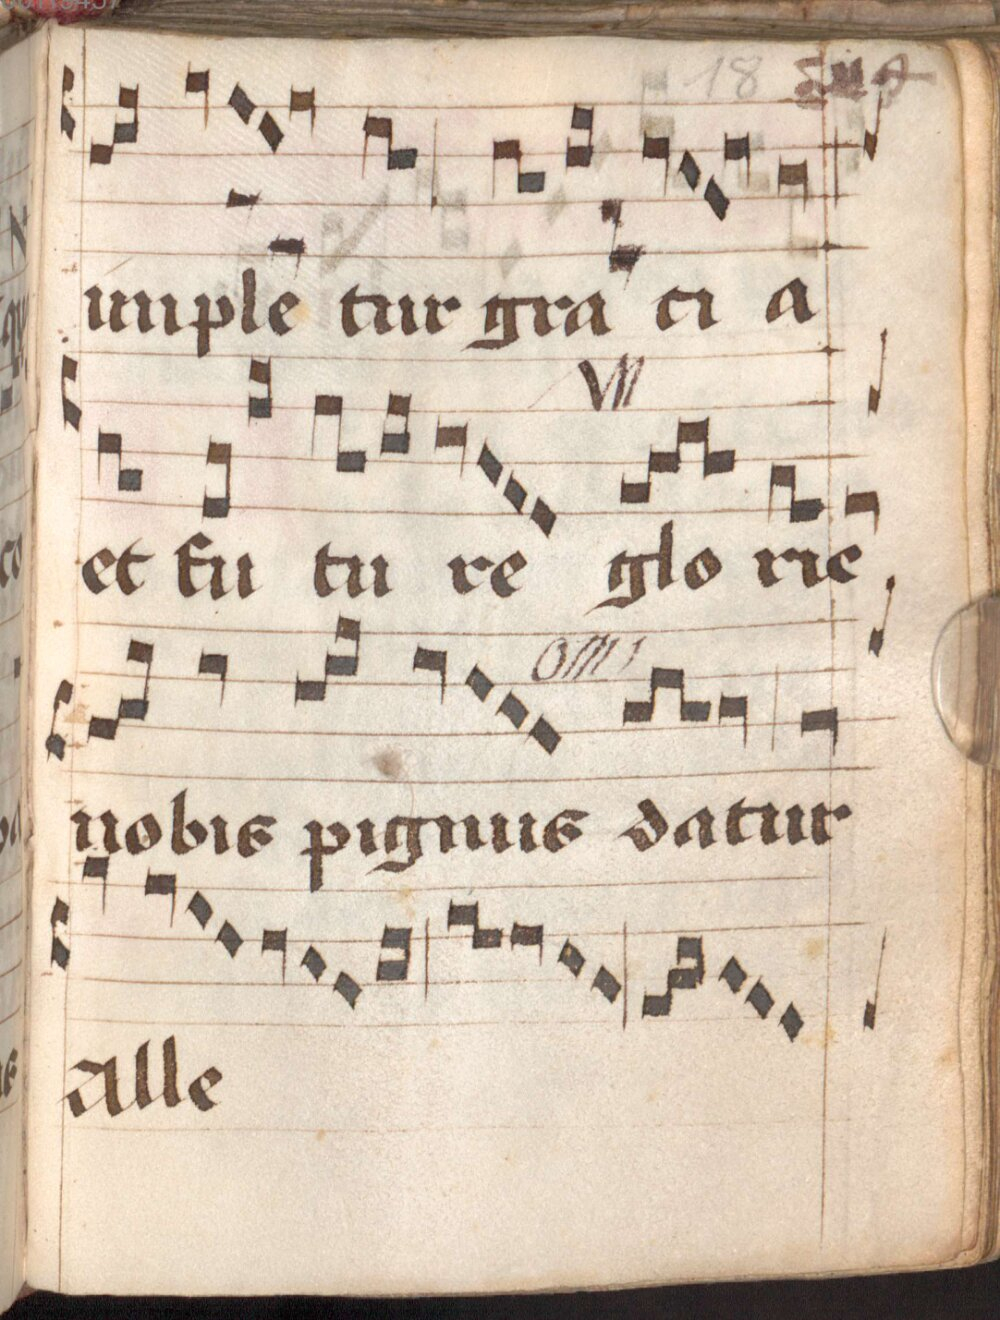 18
imple tur gra ci a
VII
et fu tu re glo rie
nobis pignus datur
Alle